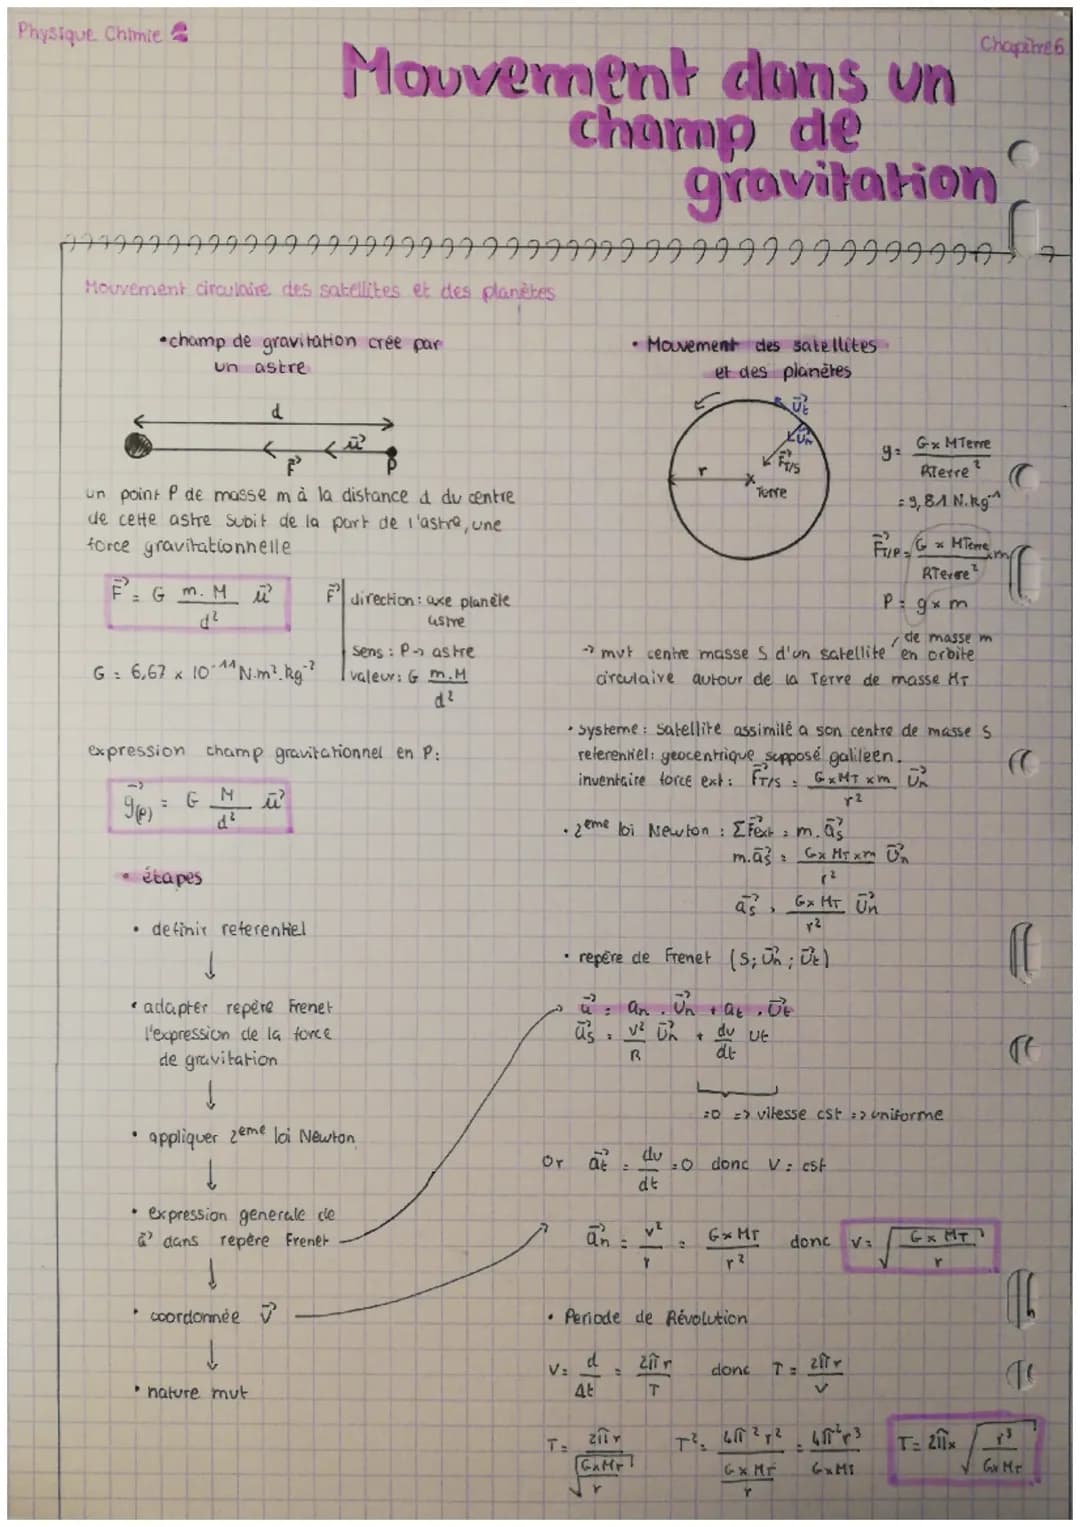 Physique Chimie
Chapitre 6
Mouvement dans un
champ de
gravitation
Mouvement circulaire des satellites et des planètes
• champ de gravitation crée par
un astre
d
u⃗
F⃗
P
un point P de masse m à la distance d du centre
de cette astre subit de la part de l'astre, une
force gravitationnelle
F⃗ = G m. M / d² u⃗
F⃗ | direction : axe planète
astre
sens : P → astre
valeur : G m.M / d²
G = 6,67 × 10⁻¹¹ N.m².kg⁻²
expression champ gravitationnel en P :
g⃗(P) = G M / d² u⃗
• étapes
• definir referentiel
↓
• adapter repère Frenet
l'expression de la force
de gravitation
↓
• appliquer 2eme loi Newton
↓
• expression generale de
a⃗ dans repère Frenet
↓
• coordonnée v⃗
↓
• nature mvt
• Mouvement des satellites
et des planètes
U⃗t
U⃗n
F⃗T/S
r
Terre
g = G × MTerre / RTerre²
= 9,81 N.kg⁻¹
F⃗T/P = G × MTerre / RTerre² × m
P = g × m
, de masse m
→ mvt centre masse S d'un satellite en orbite
circulaire autour de la Terre de masse MT
• systeme : Satellite assimilé a son centre de masse S
referentiel : geocentrique supposé galileen.
inventaire force ext : F⃗T/S = G×MT×m / r² U⃗n
• 2eme loi Newton : ΣF⃗ext = m. a⃗s
m.a⃗s = G×MT×m / r² U⃗n
a⃗s = G×MT / r² U⃗n
• repère de Frenet (S; U⃗n ; U⃗t)
a⃗ = an . U⃗n + at . U⃗t
a⃗s = v² / R U⃗n + dv / dt Ut
=0 => vitesse cst => uniforme
Or a⃗t = dv / dt = 0 donc V = cst
a⃗n = v² / r = G×MT / r² donc V = √(G×MT / r)
• Periode de Révolution
V = d / Δt = 2πr / T donc T = 2πr / v
T = 2πr / √(G×MT / r) T² = 4π²r² / (G×MT / r) = 4π²r³ / G×MT T = 2π× √(r³ / G×MT)